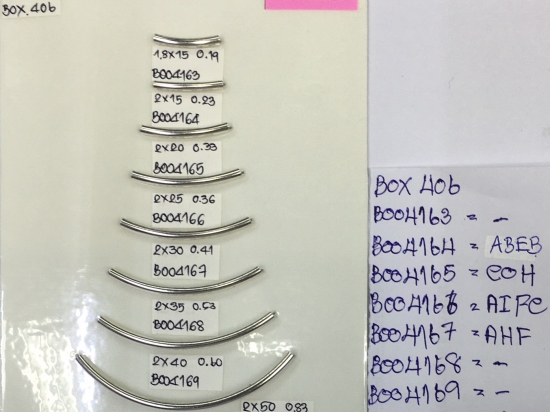 BOX 406
1,8X15 0.19
B004163
2X15 0.23
B004164
2X20 0.33
B004165
2X25 0.36
B004166
2X30 0.41
B004167
2X35 0.53
B004168
2X40 0.60
B004169
2X50 0.83
BOX 406
B004163 = -
B004164 = ABEB
B004165 = COH
B004166 = AIFC
B004167 = AHF
B004168 = -
B004169 = -